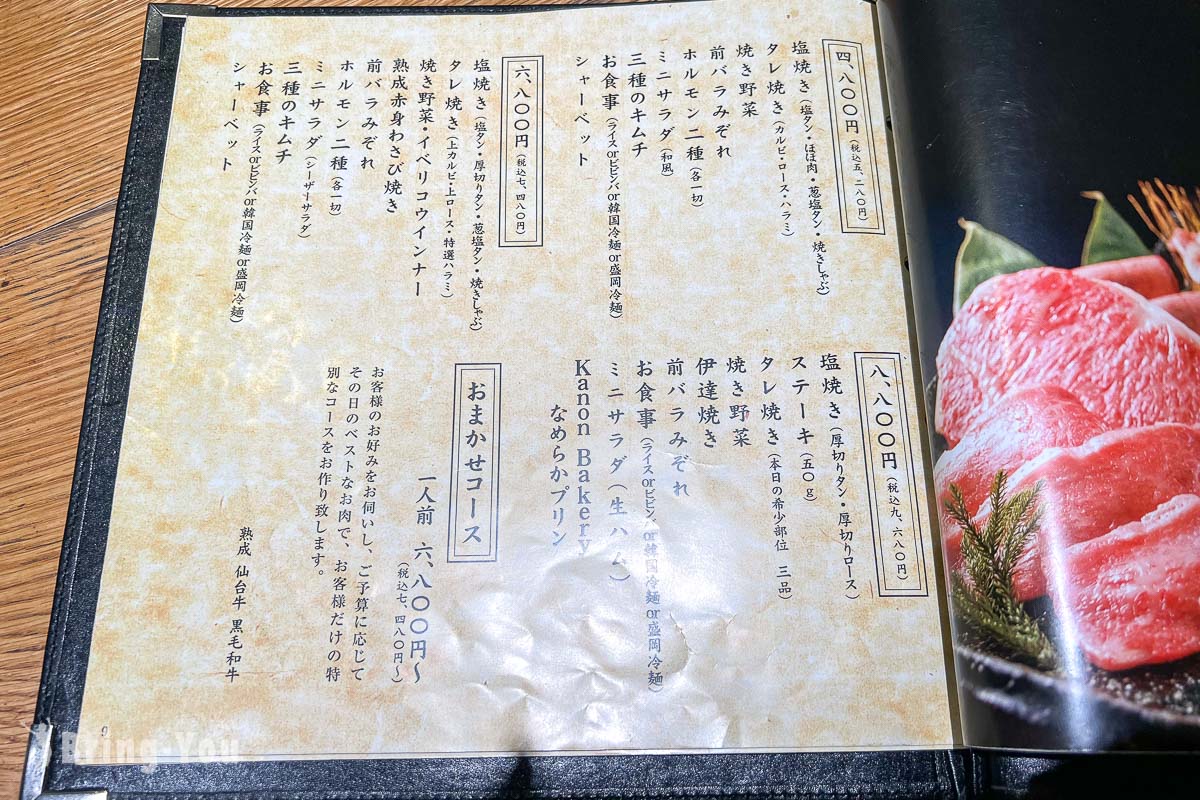 四、八〇〇円（税込五、二八〇円）
塩焼き（塩タン・ほほ肉・葱塩タン・焼きしゃぶ）
タレ焼き（カルビ・ロース・ハラミ）
焼き野菜
前バラみぞれ
ホルモン二種（各一切）
ミニサラダ（和風）
三種のキムチ
お食事（ライスorビビンバor韓国冷麺or盛岡冷麺）
シャーベット
六、八〇〇円（税込七、四八〇円）
塩焼き（塩タン・厚切りタン・葱塩タン・焼きしゃぶ）
タレ焼き（上カルビ・上ロース・特選ハラミ）
焼き野菜・イベリコウインナー
熟成赤身わさび焼き
前バラみぞれ
ホルモン二種（各一切）
ミニサラダ（シーザーサラダ）
三種のキムチ
お食事（ライスorビビンバor韓国冷麺or盛岡冷麺）
シャーベット
八、八〇〇円（税込九、六八〇円）
塩焼き（厚切りタン・厚切りロース）
ステーキ（五〇g）
タレ焼き（本日の希少部位 三品）
焼き野菜
伊達焼き
前バラみぞれ
お食事（ライスorビビンバor韓国冷麺or盛岡冷麺）
ミニサラダ（生ハム）
Kanon Bakery
なめらかプリン
おまかせコース
一人前 六、八〇〇円〜
（税込七、四八〇円〜）
お客様のお好みをお伺いし、ご予算に応じて
その日のベストなお肉で、お客様だけの特
別なコースをお作り致します。
熟成 仙台牛 黒毛和牛
9
Bring You